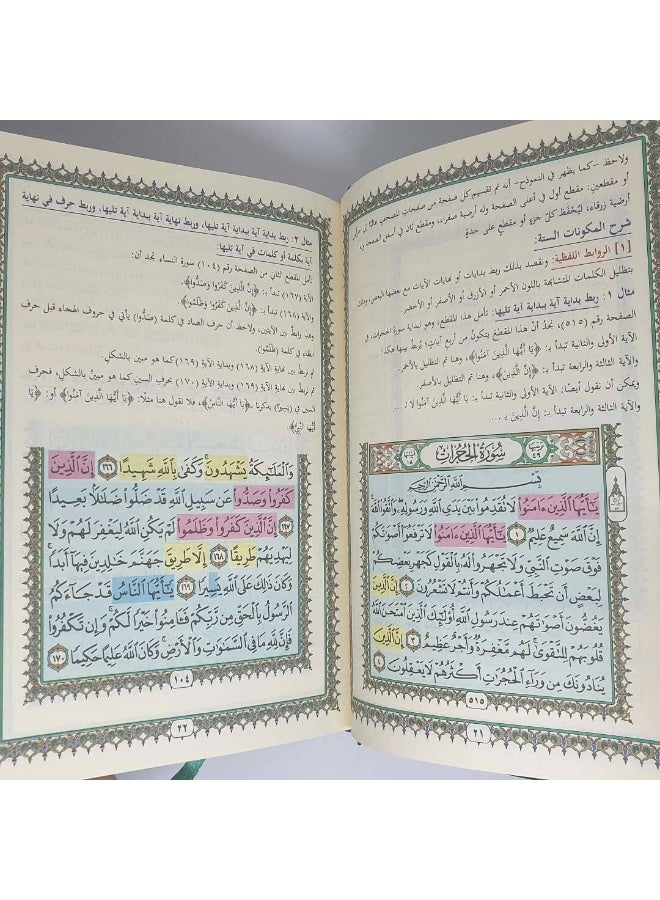 ولاحظ -كما يظهر في النموذج- أنه تم تقسيم كل صفحة من صفحات المصحف
أو مقطعين: مقطع أول في أعلى الصفحة وله أرضية صفراء، ومقطع ثان في أسفل الصفحة وله
أرضية زرقاء، ليُحفظ كلُّ جزءٍ أو مقطعٍ على حدةٍ.
شرح المكونات الستة:
[١] الروابط اللفظية: ونقصد بذلك ربط بدايات أو نهايات الآيات مع بعضها البعض، وذلك
بتظليل الكلمات المتشابهة باللون الأحمر أو الأزرق أو الأصفر أو الأخضر.
مثال ١: ربط بداية آية ببداية آية تليها: تأمل هذا المقطع، وهو لبداية سورة الحجرات، في
الصفحة رقم (٥١٥)، تجدُ أنَّ هذا المقطع يتكونُ من أربع آياتٍ؛ يُربط بينها هكذا:
والآية الأولى والثانية تبدأ بـ: ﴿يَا أَيُّهَا الَّذِينَ آمَنُوا﴾، وهنا تم التظليل بالأحمر
والآية الثالثة والرابعة تبدأ بـ: ﴿إِنَّ الَّذِينَ﴾، وهنا تم التظليل بالأصفر
ويمكن أن نقول أيضًا: الآية الأولى والثانية تبدأ بـ: يَا أَيُّهَا الَّذِينَ آمَنُوا لَا ...
والآية الثالثة والرابعة تبدأ بـ: إِنَّ الَّذِينَ يـ ...
ترتيبها ٤٩ سُورَةُ الحُجُرَاتِ
بِسْمِ اللَّهِ الرَّحْمَٰنِ الرَّحِيمِ
يَٰٓأَيُّهَا ٱلَّذِينَ ءَامَنُوا۟ لَا تُقَدِّمُوا۟ بَيْنَ يَدَىِ ٱللَّهِ وَرَسُولِهِۦ وَٱتَّقُوا۟ ٱللَّهَ
إِنَّ ٱللَّهَ سَمِيعٌ عَلِيمٌ ١ يَٰٓأَيُّهَا ٱلَّذِينَ ءَامَنُوا۟ لَا تَرْفَعُوٓا۟ أَصْوَٰتَكُمْ
فَوْقَ صَوْتِ ٱلنَّبِىِّ وَلَا تَجْهَرُوا۟ لَهُۥ بِٱلْقَوْلِ كَجَهْرِ بَعْضِكُمْ
لِبَعْضٍ أَن تَحْبَطَ أَعْمَٰلُكُمْ وَأَنتُمْ لَا تَشْعُرُونَ ٢ إِنَّ ٱلَّذِينَ
يَغُضُّونَ أَصْوَٰتَهُمْ عِندَ رَسُولِ ٱللَّهِ أُو۟لَٰٓئِكَ ٱلَّذِينَ ٱمْتَحَنَ ٱللَّهُ
قُلُوبَهُمْ لِلتَّقْوَىٰ لَهُم مَّغْفِرَةٌ وَأَجْرٌ عَظِيمٌ ٣ إِنَّ ٱلَّذِينَ
يُنَادُونَكَ مِن وَرَآءِ ٱلْحُجُرَٰتِ أَكْثَرُهُمْ لَا يَعْقِلُونَ ٤
٥١٥
٢١
مثال ٢: ربط بداية آية ببداية آية تليها، وربط نهاية آية ببداية آية تليها، وربط حرف في نهاية
آية بكلمة أو كلمات في آية تليها:
تأمل للمقطع الثاني من الصفحة رقم (١٠٤) سورة النساء تجد أن:
الآية (١٦٧) تبدأ بـ: ﴿إِنَّ الَّذِينَ كَفَرُوا وَصَدُّوا﴾.
الآية (١٦٨) تبدأ بـ: ﴿إِنَّ الَّذِينَ كَفَرُوا وَظَلَمُوا﴾
وهذا رابطٌ بين الآيتين، ولاحظ أن حرف الصاد في كلمة (صَدُّوا) يأتي في حروف الهجاء قبل حرف
الظاء في كلمة (ظَلَمُوا).
ثم نربط بين نهاية الآية (١٦٨) وبداية الآية (١٦٩) كما هو مبين بالشكل.
ثم نربط بين نهاية الآية (١٦٩) وبداية الآية (١٧٠) بحرف السين كما هو مبينٌ بالشكل، فحرف
السين في (يَسِيرًا) يذكرنا بـ ﴿يَا أَيُّهَا النَّاسُ﴾، فلا نقول هنا مثلًا: ﴿يَا أَيُّهَا الَّذِينَ آمَنُوا﴾ أو: ﴿يَا
أَيُّهَا النَّبِيُّ﴾.
وَٱلْمَلَٰٓئِكَةُ يَشْهَدُونَ وَكَفَىٰ بِٱللَّهِ شَهِيدًا ١٦٦ إِنَّ ٱلَّذِينَ
كَفَرُوا۟ وَصَدُّوا۟ عَن سَبِيلِ ٱللَّهِ قَدْ ضَلُّوا۟ ضَلَٰلًۢا بَعِيدًا
١٦٧ إِنَّ ٱلَّذِينَ كَفَرُوا۟ وَظَلَمُوا۟ لَمْ يَكُنِ ٱللَّهُ لِيَغْفِرَ لَهُمْ وَلَا
لِيَهْدِيَهُمْ طَرِيقًا ١٦٨ إِلَّا طَرِيقَ جَهَنَّمَ خَٰلِدِينَ فِيهَآ أَبَدًا
وَكَانَ ذَٰلِكَ عَلَى ٱللَّهِ يَسِيرًا ١٦٩ يَٰٓأَيُّهَا ٱلنَّاسُ قَدْ جَآءَكُمُ
ٱلرَّسُولُ بِٱلْحَقِّ مِن رَّبِّكُمْ فَـَٔامِنُوا۟ خَيْرًا لَّكُمْ وَإِن تَكْفُرُوا۟
فَإِنَّ لِلَّهِ مَا فِى ٱلسَّمَٰوَٰتِ وَٱلْأَرْضِ وَكَانَ ٱللَّهُ عَلِيمًا حَكِيمًا ١٧٠
١٠٤
٢٢